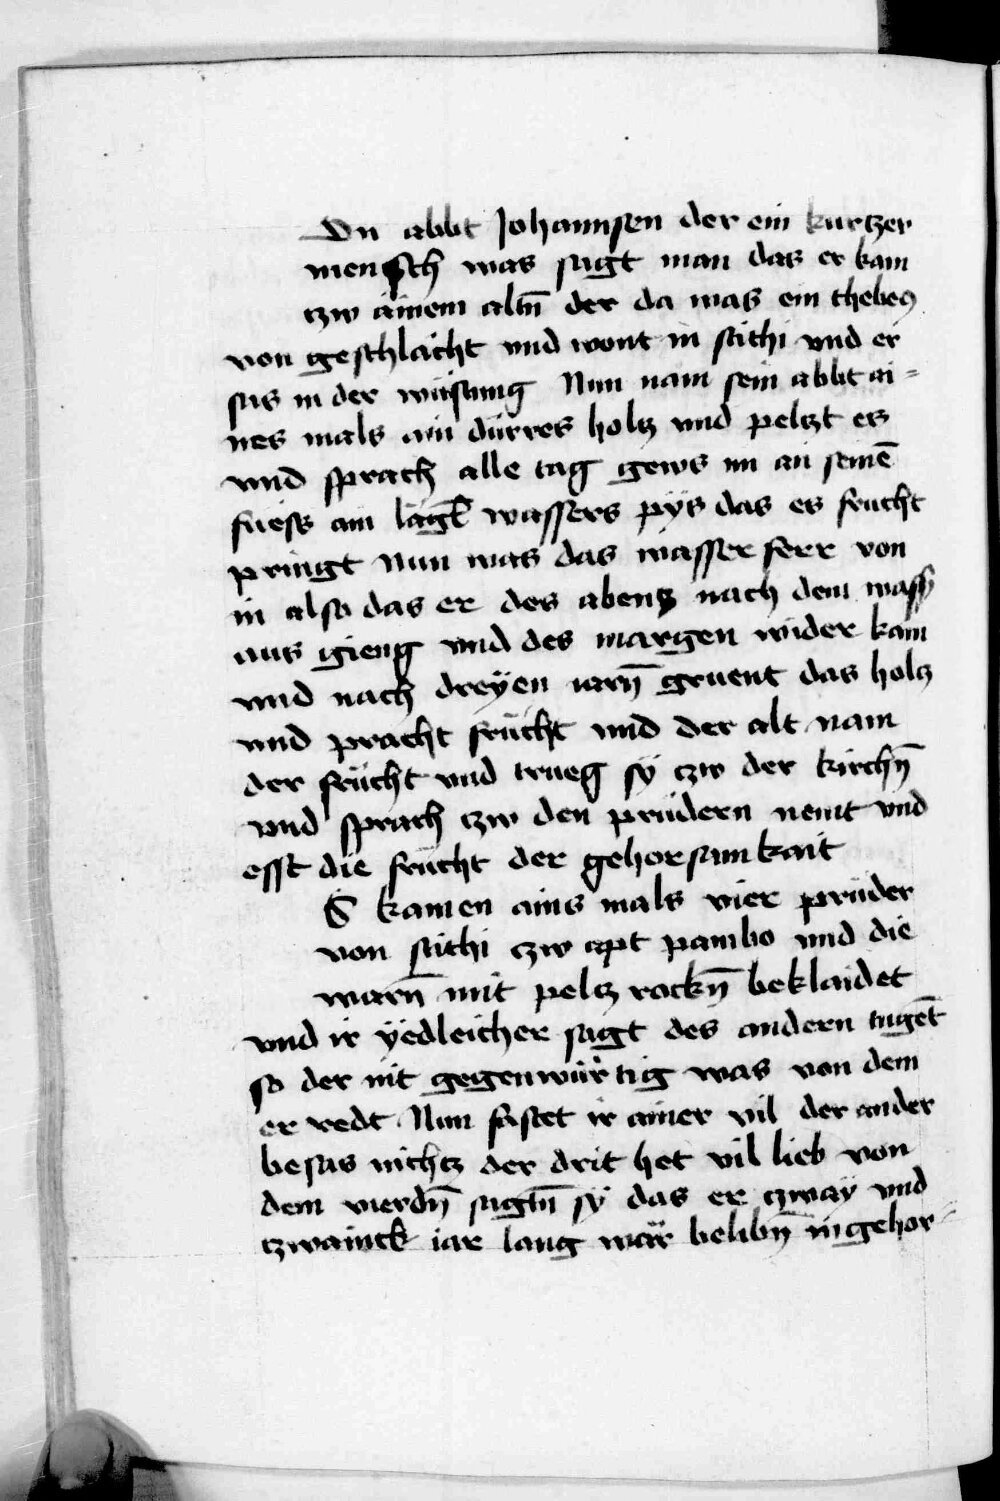 Dn abbt Johannsen der ein kurtzer
mensch was sagt man das er kam
czw ainem altn̄ der da was ein thebeꝯ
von geschlácht vnd wont in scithi vnd er
sas in der wüstung Nun nam sein abbt ai⸗
nes mals ain dürres holtz vnd peltzt es
vnd sprach alle tag gews im an seinē
fuess ain lágl̄ wassers pÿs das es frucht
pringt Nun was das wasser ferr von
in also das er des abentz nach dem wass̄
aus gieng vnd des margen wider kam
vnd nach dreÿen iarn̄ gruent das holtz
vnd pracht frücht vnd der alt nam
der frücht vnd trueg sÿ czw der kirchn̄
vnd sprach czw den prüdern nemt vnd
esst die frücht der gehorsamkait
S kamen ains mals vier prüder
von scithi czw apt pambo vnd die
warn̄ mit peltz rockn̄ beklaidet
vnd ir ÿedleicher sagt des andern tugēt
so der nit gegenwürtig was von dem
er redt Nun fastet ir ainer vil der ander
besas nichtz der drit het vil lieb von
dem vierdn̄ sagtn̄ sÿ das er czwaÿ vnd
czwainck iar lang wár belibn̄ in gehor⸗